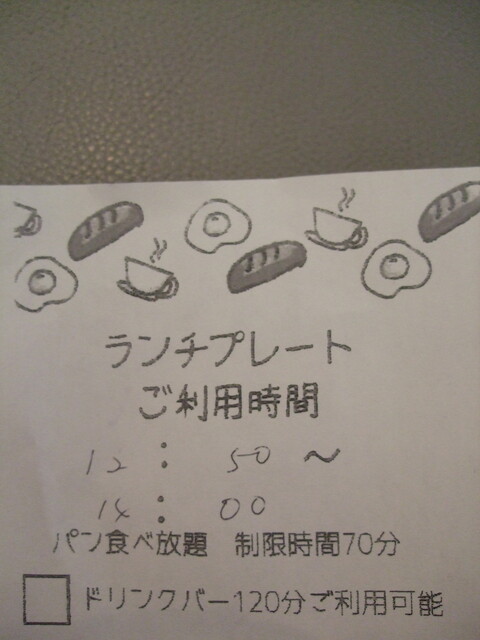 ランチプレート
ご利用時間
12 : 50 ~
14 : 00
パン食べ放題 制限時間70分
ドリンクバー120分ご利用可能